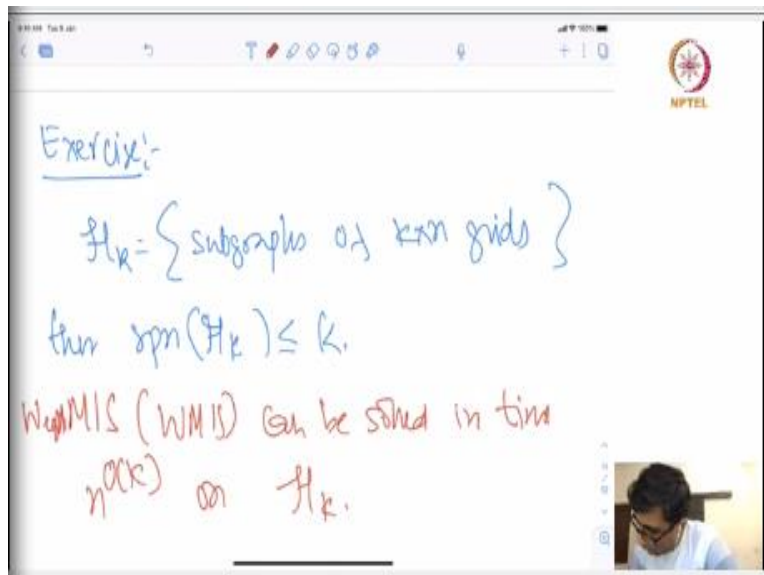 Exercise:-
H_k = { subgraphs of k×n grids }
then spn(H_k) ≤ k.
MIS (WMIS) can be solved in time
n^{O(k)} on H_k.
NPTEL